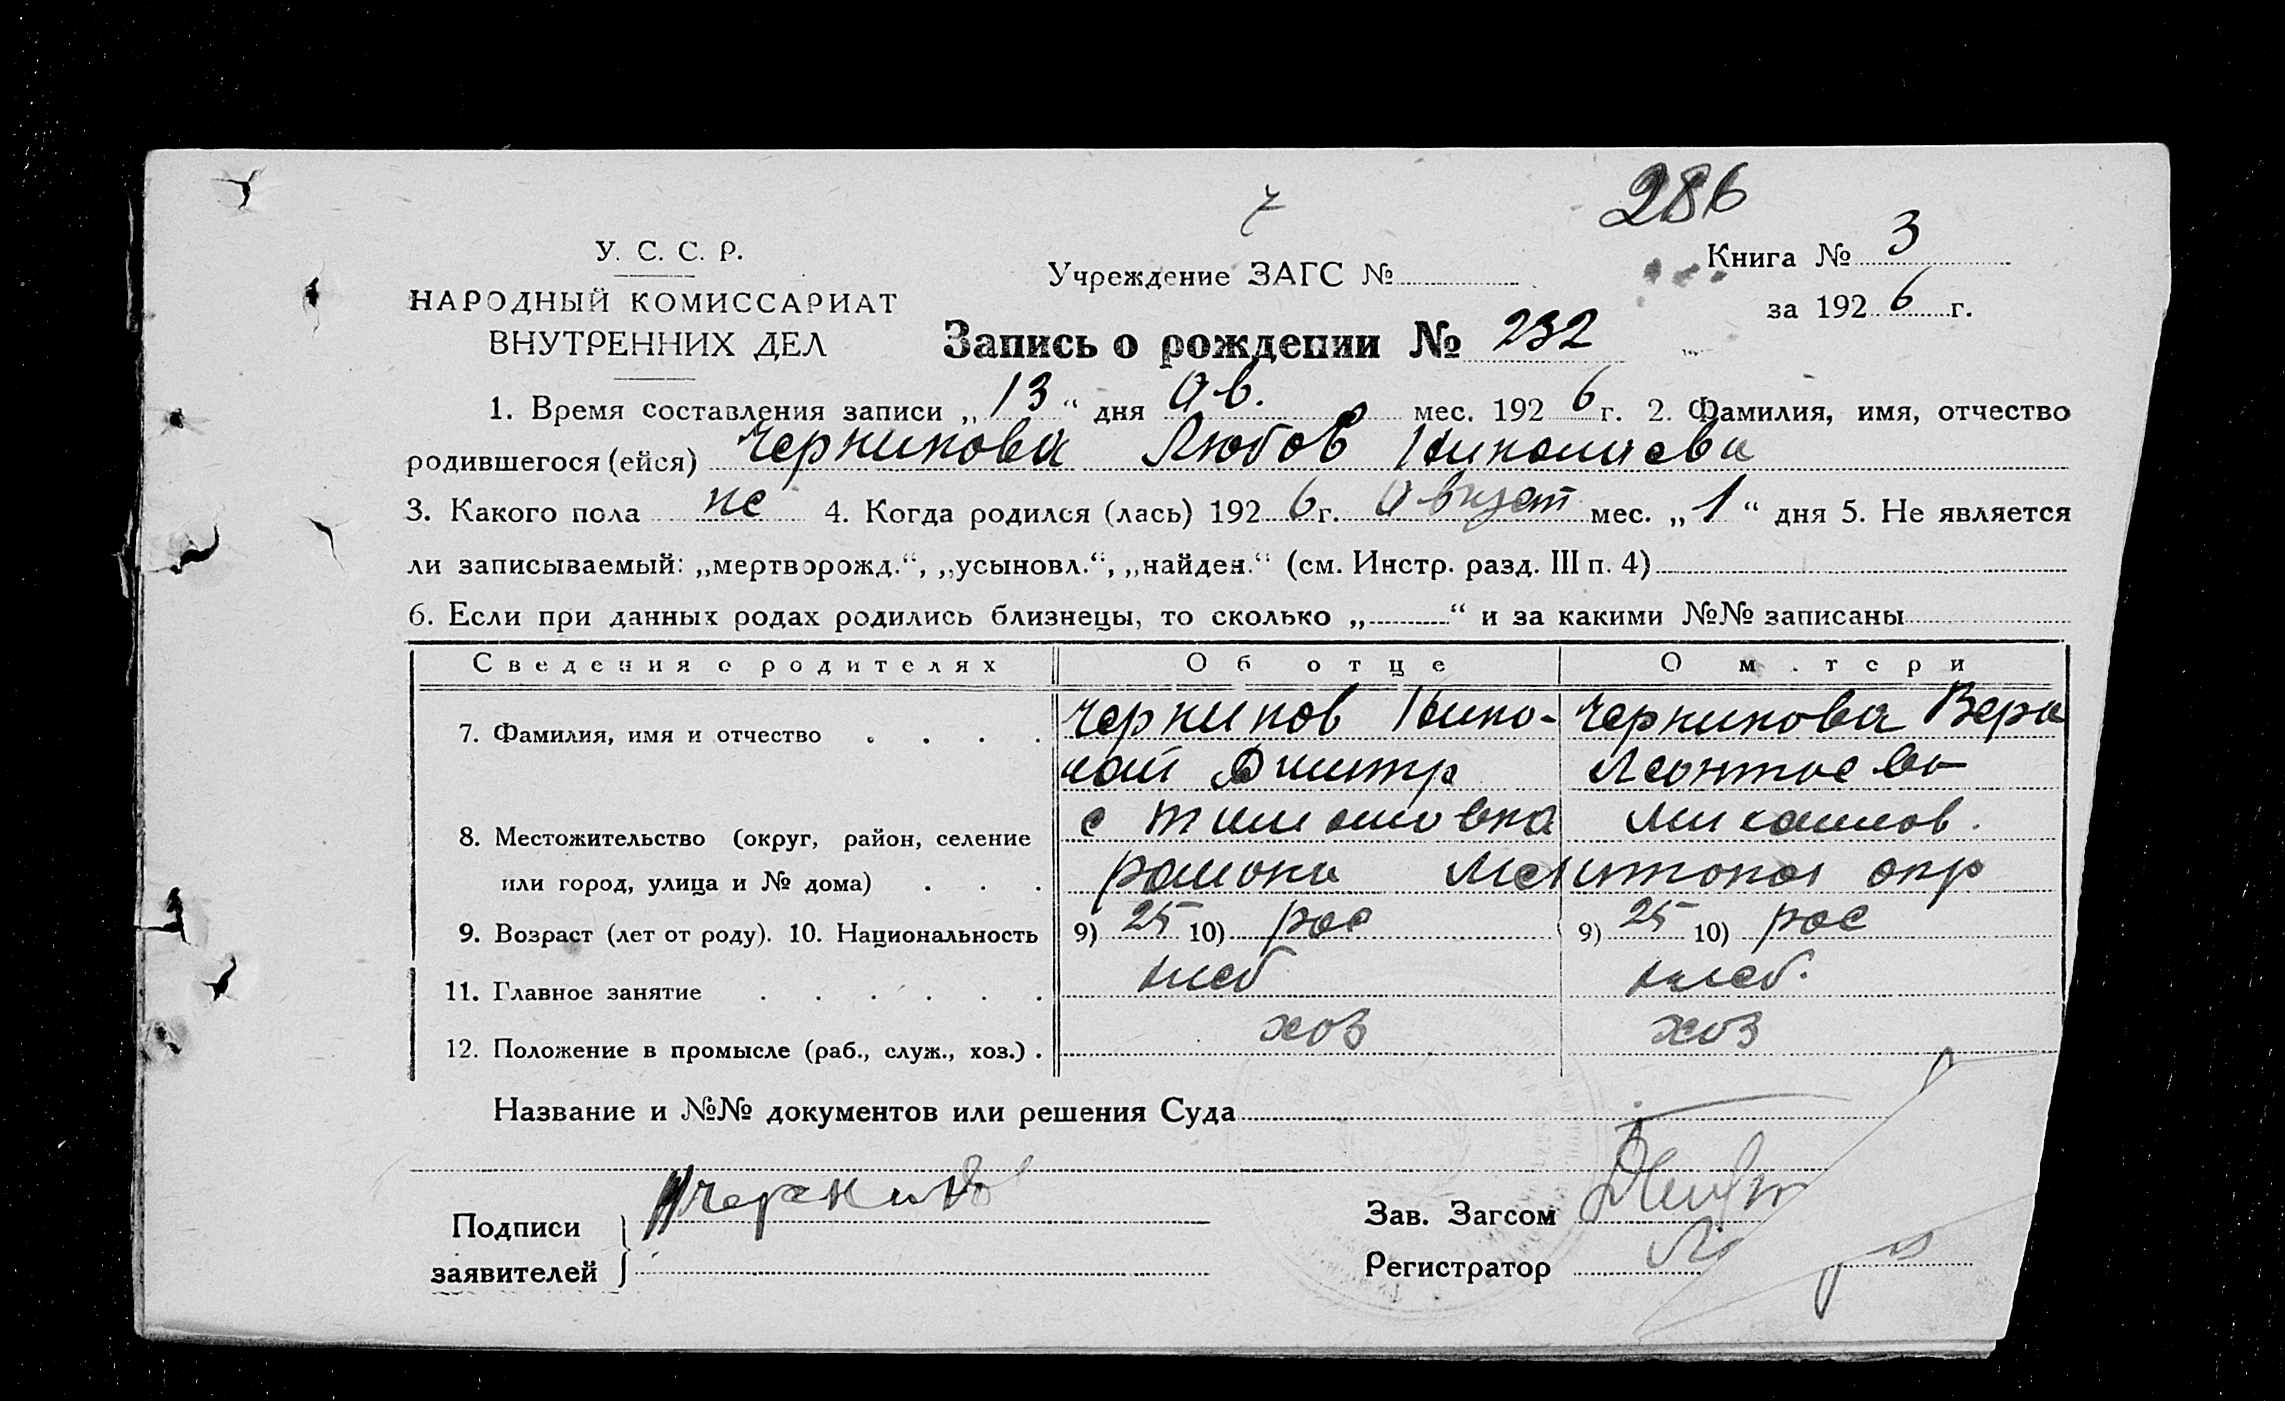 286
У. С. С. Р.
НАРОДНЫЙ КОМИССАРИАТ
ВНУТРЕННИХ ДЕЛ
Учреждение ЗАГС №
Книга № 3
за 1926 г.
Запись о рождении № 232
1. Время составления записи „13“ дня Ав. мес. 1926 г. 2. Фамилия, имя, отчество
родившегося (ейся) Черникова Любов Николаева
3. Какого пола же 4. Когда родился (лась) 1926 г. Август мес. „1“ дня 5. Не является
ли записываемый: „мертворожд.“, „усыновл.“, „найден.“ (см. Инстр. разд. III п. 4)
6. Если при данных родах родились близнецы, то сколько „ “ и за какими №№ записаны
Сведения о родителях Об отце О матери
7. Фамилия, имя и отчество . . . . Черников Нико- Черникова Вера
лай Дмитр Леонтьев
8. Местожительство (округ, район, селение с Тимошовка Михайлов.
или город, улица и № дома) . . . района Мелитопол окр
9. Возраст (лет от роду). 10. Национальность 9) 25 10) рос 9) 25 10) рос
11. Главное занятие . . . . . . хлеб хлеб.
12. Положение в промысле (раб., служ., хоз.) . хоз хоз
Название и №№ документов или решения Суда
Подписи
заявителей
Черников
Зав. Загсом
Регистратор